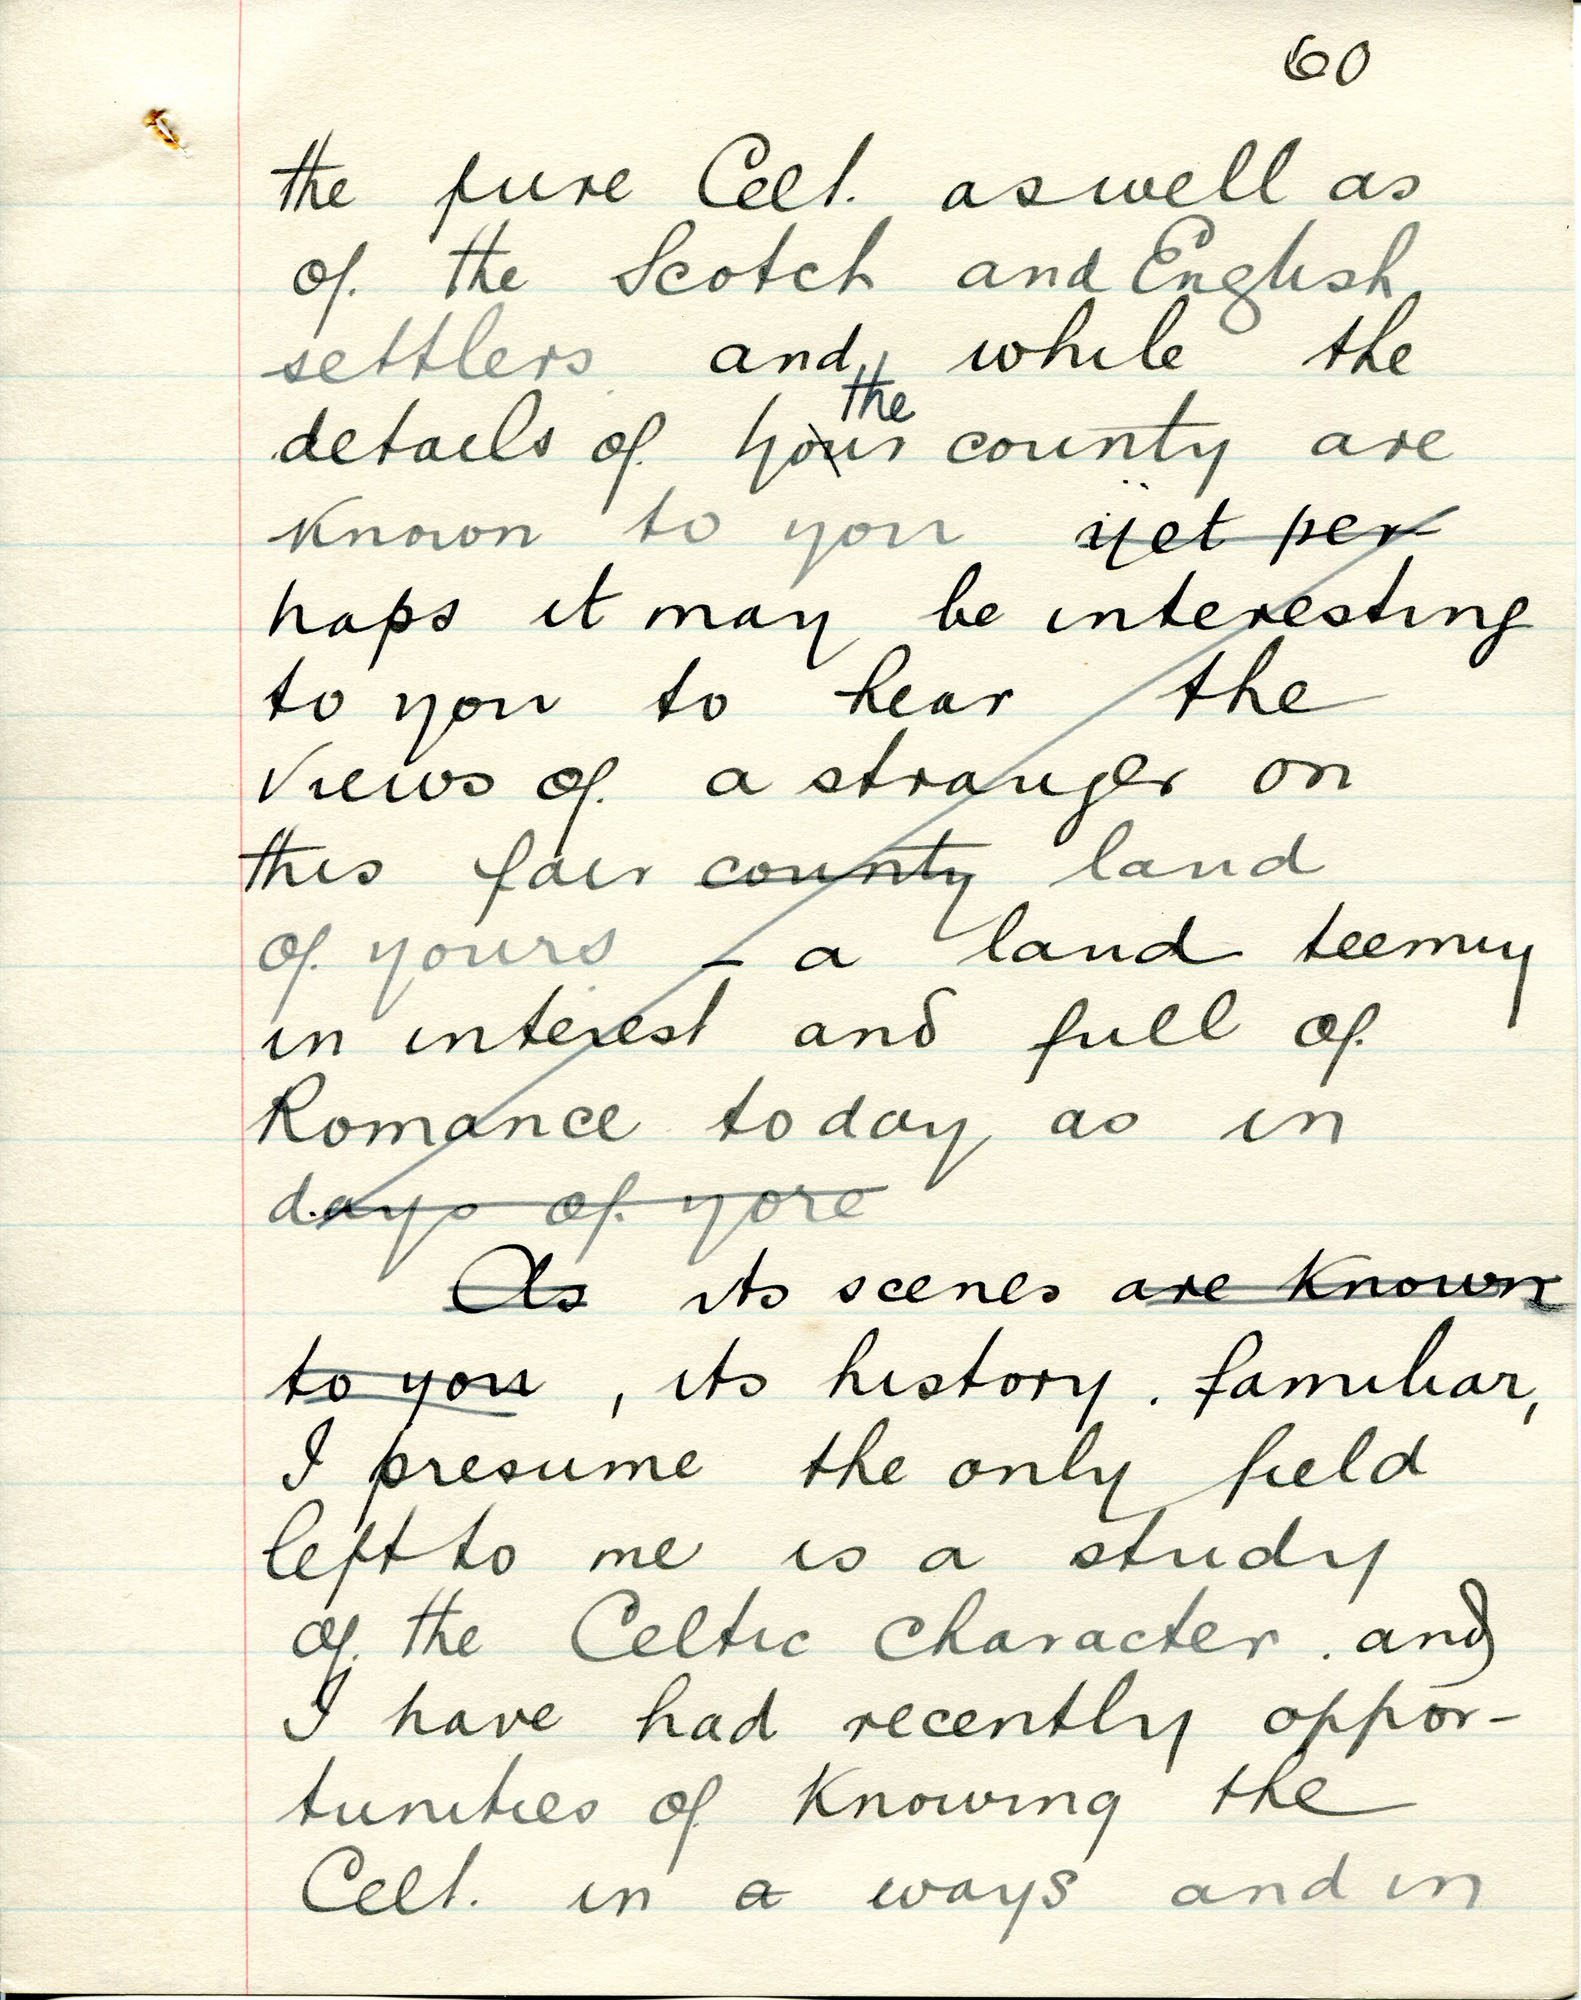 60
the pure Celt. aswell as
of the Scotch and English
settlers and, while the
the
details of your county are
Known to you yet per
haps it may be interesting
to you to hear the
views of a stranger on
this fair county land
of yours – a land teeming
in interest and full of
Romance today as in
days of yore
As its scenes are Known
to you, its history. familiar,
I presume the only field
left to me is a study
of the Celtic character. and
I have had recently oppor-
tunities of Knowing the
Celt. in a ways and in